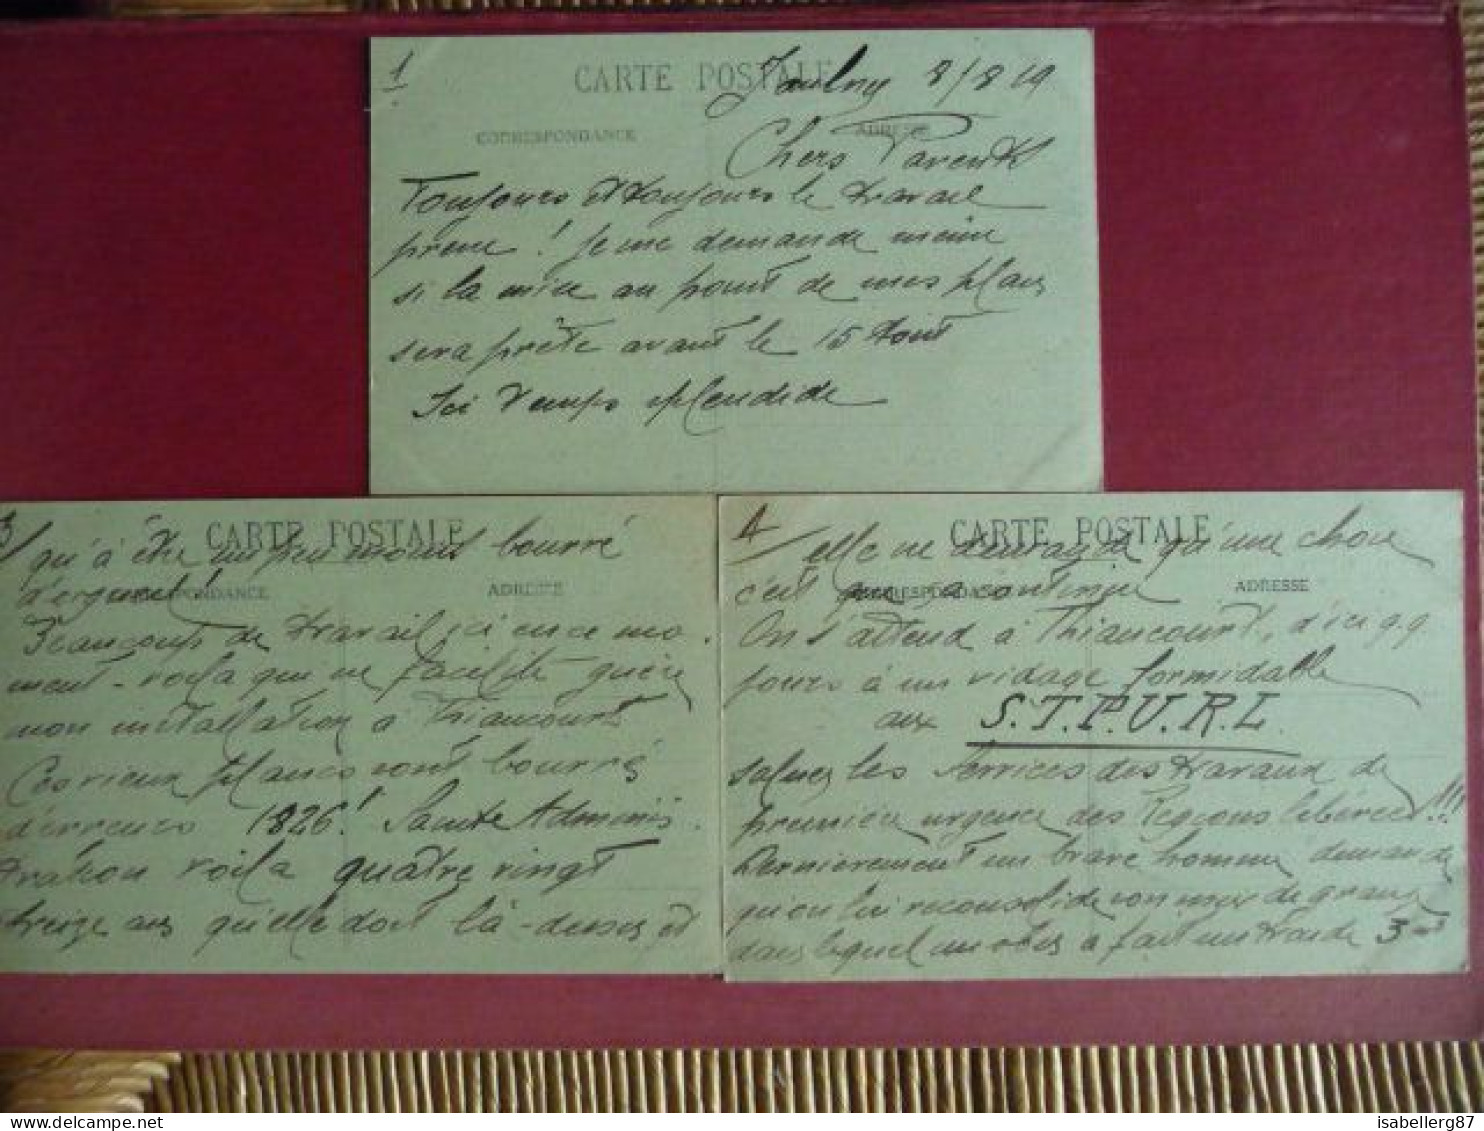 1
CARTE POSTALE
Jaulny 8/8 19
CORRESPONDANCE
ADRESSE
Chers Parents
Toujours et toujours le travail
presse ! Je me demande même
si la mise au point de mes plans
sera prête avant le 15 Août
Ici temps splendide
3
CARTE POSTALE
qu'à être un peu moins bourré
CORRESPONDANCE
ADRESSE
d'argent!
Beaucoup de travail ici en ce mo-
ment - voila qui ne facilite guère
mon installation à Thiaucourt
Ces vieux plans sont bourrés
d'erreurs 1826! Sainte Adminis-
tration voila quatre vingt
treize ans qu'elle dort là-dessus et
4
CARTE POSTALE
elle ne demande qu'une chose
CORRESPONDANCE
ADRESSE
c'est que ça continue
On s'attend à Thiaucourt, d'ici q.q.
jours à un vidage formidable
aux S.T.P.U.R.L.
saluez les Services des travaux de
première urgence des Régions libérées!!!
Dernièrement un brave homme demande
qu'on lui reconsolide son mur de grange
dans lequel un obus a fait un trou de 3m
isabellerg87